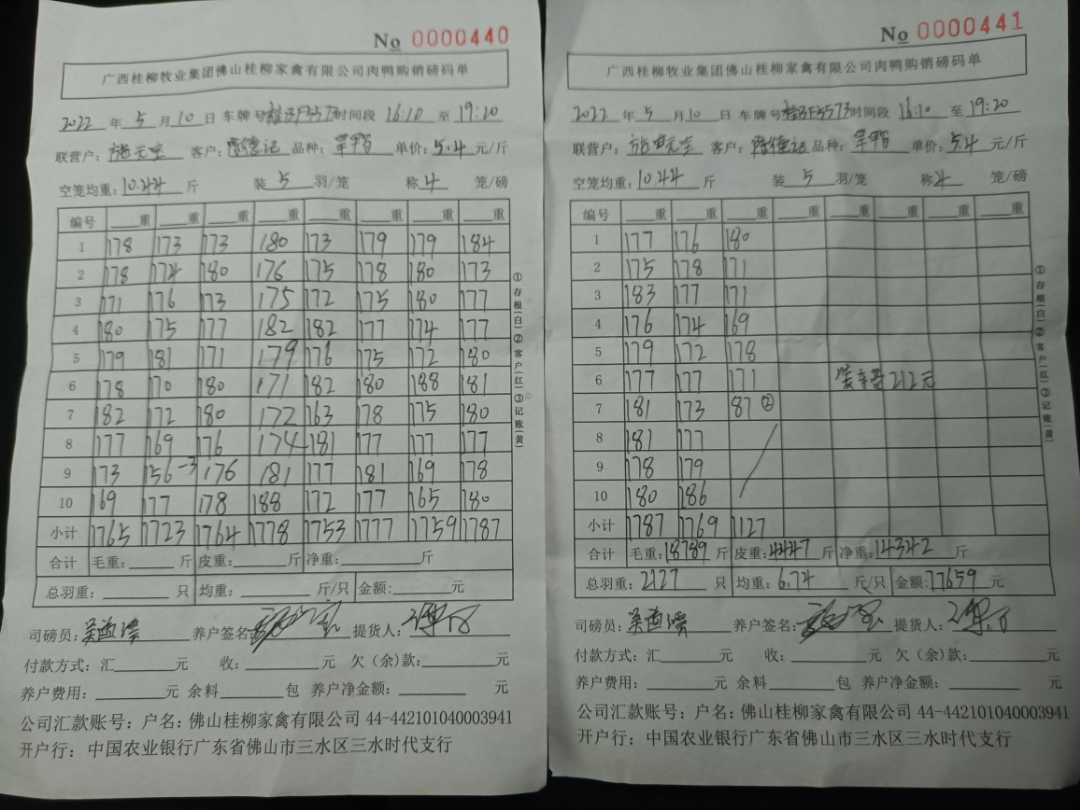 No 0000440
广西桂柳牧业集团佛山桂柳家禽有限公司肉鸭购销磅码单
2022 年 5 月 10 日 车牌号: 时间段 16:10 至 19:20
联营户: 客户: 品种: 单价: 5.4 元/斤
空笼均重: 10.44 斤 装 5 羽/笼 称 4 笼/磅
编号 重 重 重 重 重 重 重 重
1 178 173 173 180 173 179 179 184
2 178 174 180 176 175 178 180 173
3 171 176 173 175 172 175 180 177
4 180 175 177 182 182 177 174 177
5 179 181 171 179 176 175 172 180
6 178 170 180 171 182 180 188 181
7 182 172 180 172 163 178 175 180
8 177 169 176 174 181 177 177 177
9 173 156-3 176 181 177 181 169 178
10 169 177 178 188 172 177 165 180
小计 1765 1723 1764 1778 1753 1777 1759 1787
合计 毛重: 斤 皮重: 斤 净重: 斤
总羽重: 只 均重: 斤/只 金额: 元
司磅员: 养户签名: 提货人:
付款方式: 汇 元 收: 元 欠(余)款: 元
养户费用: 元 余料 包 养户净金额: 元
公司汇款账号: 户名: 佛山桂柳家禽有限公司 44-442101040003941
开户行: 中国农业银行广东省佛山市三水区三水时代支行
①存根(白)②客户(红)③记账(黄)
No 0000441
广西桂柳牧业集团佛山桂柳家禽有限公司肉鸭购销磅码单
2022 年 5 月 10 日 车牌号: 时间段 16:10 至 19:20
联营户: 客户: 品种: 单价: 5.4 元/斤
空笼均重: 10.44 斤 装 5 羽/笼 称 4 笼/磅
编号 重 重 重 重 重 重 重 重
1 177 176 180
2 175 178 171
3 183 177 171
4 176 174 169
5 179 172 178
6 177 177 171 212元
7 181 173 87②
8 181 177
9 178 179
10 180 186
小计 1787 1769 1127
合计 毛重: 18789 斤 皮重: 4447 斤 净重: 14342 斤
总羽重: 2127 只 均重: 6.74 斤/只 金额: 77659 元
司磅员: 养户签名: 提货人:
付款方式: 汇 元 收: 元 欠(余)款: 元
养户费用: 元 余料 包 养户净金额: 元
公司汇款账号: 户名: 佛山桂柳家禽有限公司 44-442101040003941
开户行: 中国农业银行广东省佛山市三水区三水时代支行
①存根(白)②客户(红)③记账(黄)